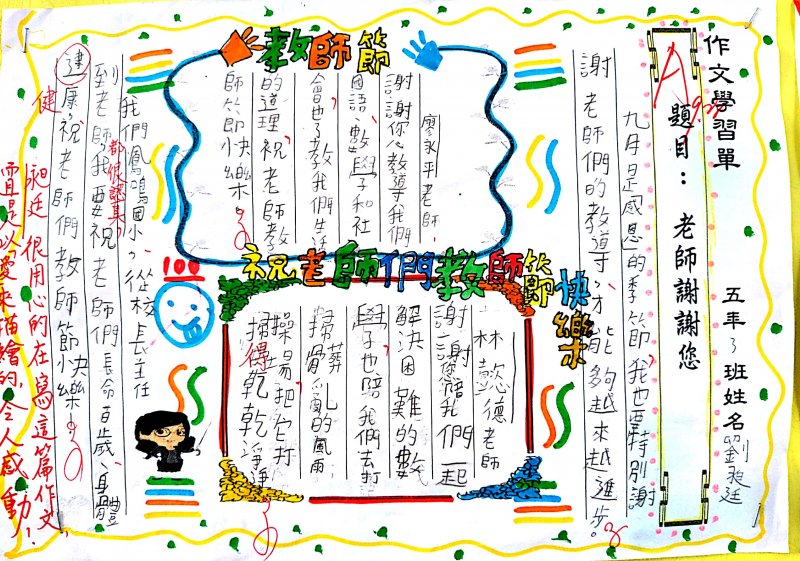 作文學習單
五年3班姓名劉昶廷
題目：老師謝謝您
A
九月是感恩的季節，我也要特別謝
謝老師們的教導，才能夠越來越進步。
教師節
廖永平老師
謝謝你教導我們
國語、數學和社
會也教我們生活
的道理祝老師教
師節快樂。
祝老師們教師節快樂
林懿德老師
謝謝您陪我們一起
解決困難的數
學也陪我們去打
掃
操場把它打
掃得乾乾淨淨
100
我們鳳鳴國小，從校長主任
到老師都很認真，我要祝老師們長命百歲、身體
健康祝老師們教師節快樂。
健
昶廷很用心的在寫這篇作文，
而且是以愛來描繪的，令人感動！